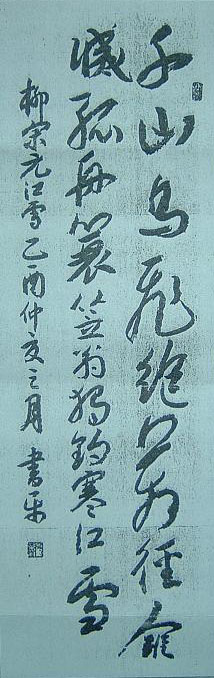 千山鸟飛絕万径人踪
滅孤舟蓑笠翁獨釣寒江雪
柳宗元江雪乙酉仲夏之月書